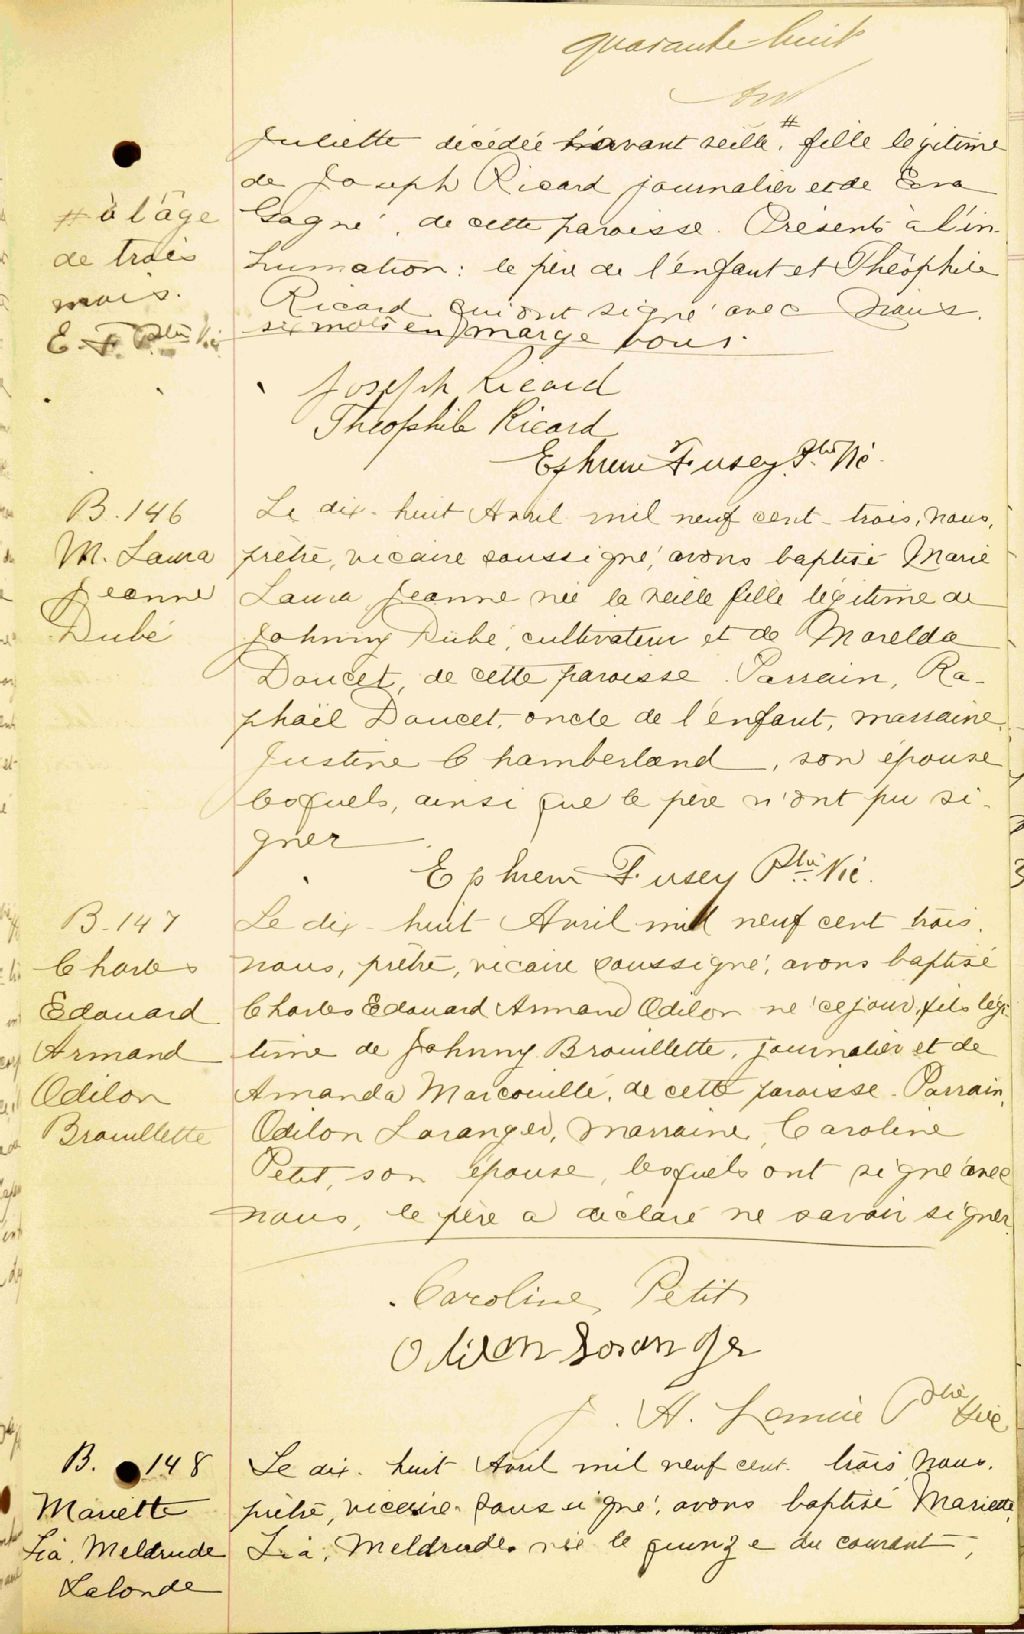 quarante-huit
Juliette décédée l'avant veille, # fille légitime
de Joseph Ricard journalier et de Eva
Gagné, de cette paroisse. Présents à l'in-
humation: le père de l'enfant et Théophile
Ricard qui ont signé avec nous.
six mots en marge bons.
# à l'âge
de trois
mois.
E. F. Ptre Vic
Joseph Ricard
Théophile Ricard
Ephrem Fusey Ptre Vic.
B. 146
M. Laura
Jeanne
Dubé
Le dix-huit Avril mil neuf cent-trois, nous,
prêtre, vicaire soussigné, avons baptisé Marie
Laura Jeanne née la veille fille légitime de
Johnny Dubé, cultivateur et de Marelda
Doucet, de cette paroisse. Parrain, Ra-
phaël Doucet, oncle de l'enfant, marraine,
Justine Chamberland, son épouse
lesquels, ainsi que le père n'ont pu si-
gner
Ephrem Fusey Ptre Vic.
B. 147
Charles
Edouard
Armand
Odilon
Brouillette
Le dix-huit Avril mil neuf cent trois,
nous, prêtre, vicaire soussigné, avons baptisé
Charles Edouard Armand Odilon né ce jour, fils légi-
time de Johnny Brouillette, journalier et de
Amanda Marcouillé, de cette paroisse. Parrain,
Odilon Laranger, marraine, Caroline
Petit, son épouse, lesquels ont signé avec
nous, le père a déclaré ne savoir signer.
Caroline Petit
Odilon Loranger
J. H. Lemire Ptre Vic
B. 148
Mariette
Lia, Meldrude
Lalonde
Le dix-huit Avril mil neuf cent trois, nous,
prêtre, vicaire soussigné, avons baptisé Mariette,
Lia, Meldrude, née le quinze du courant,